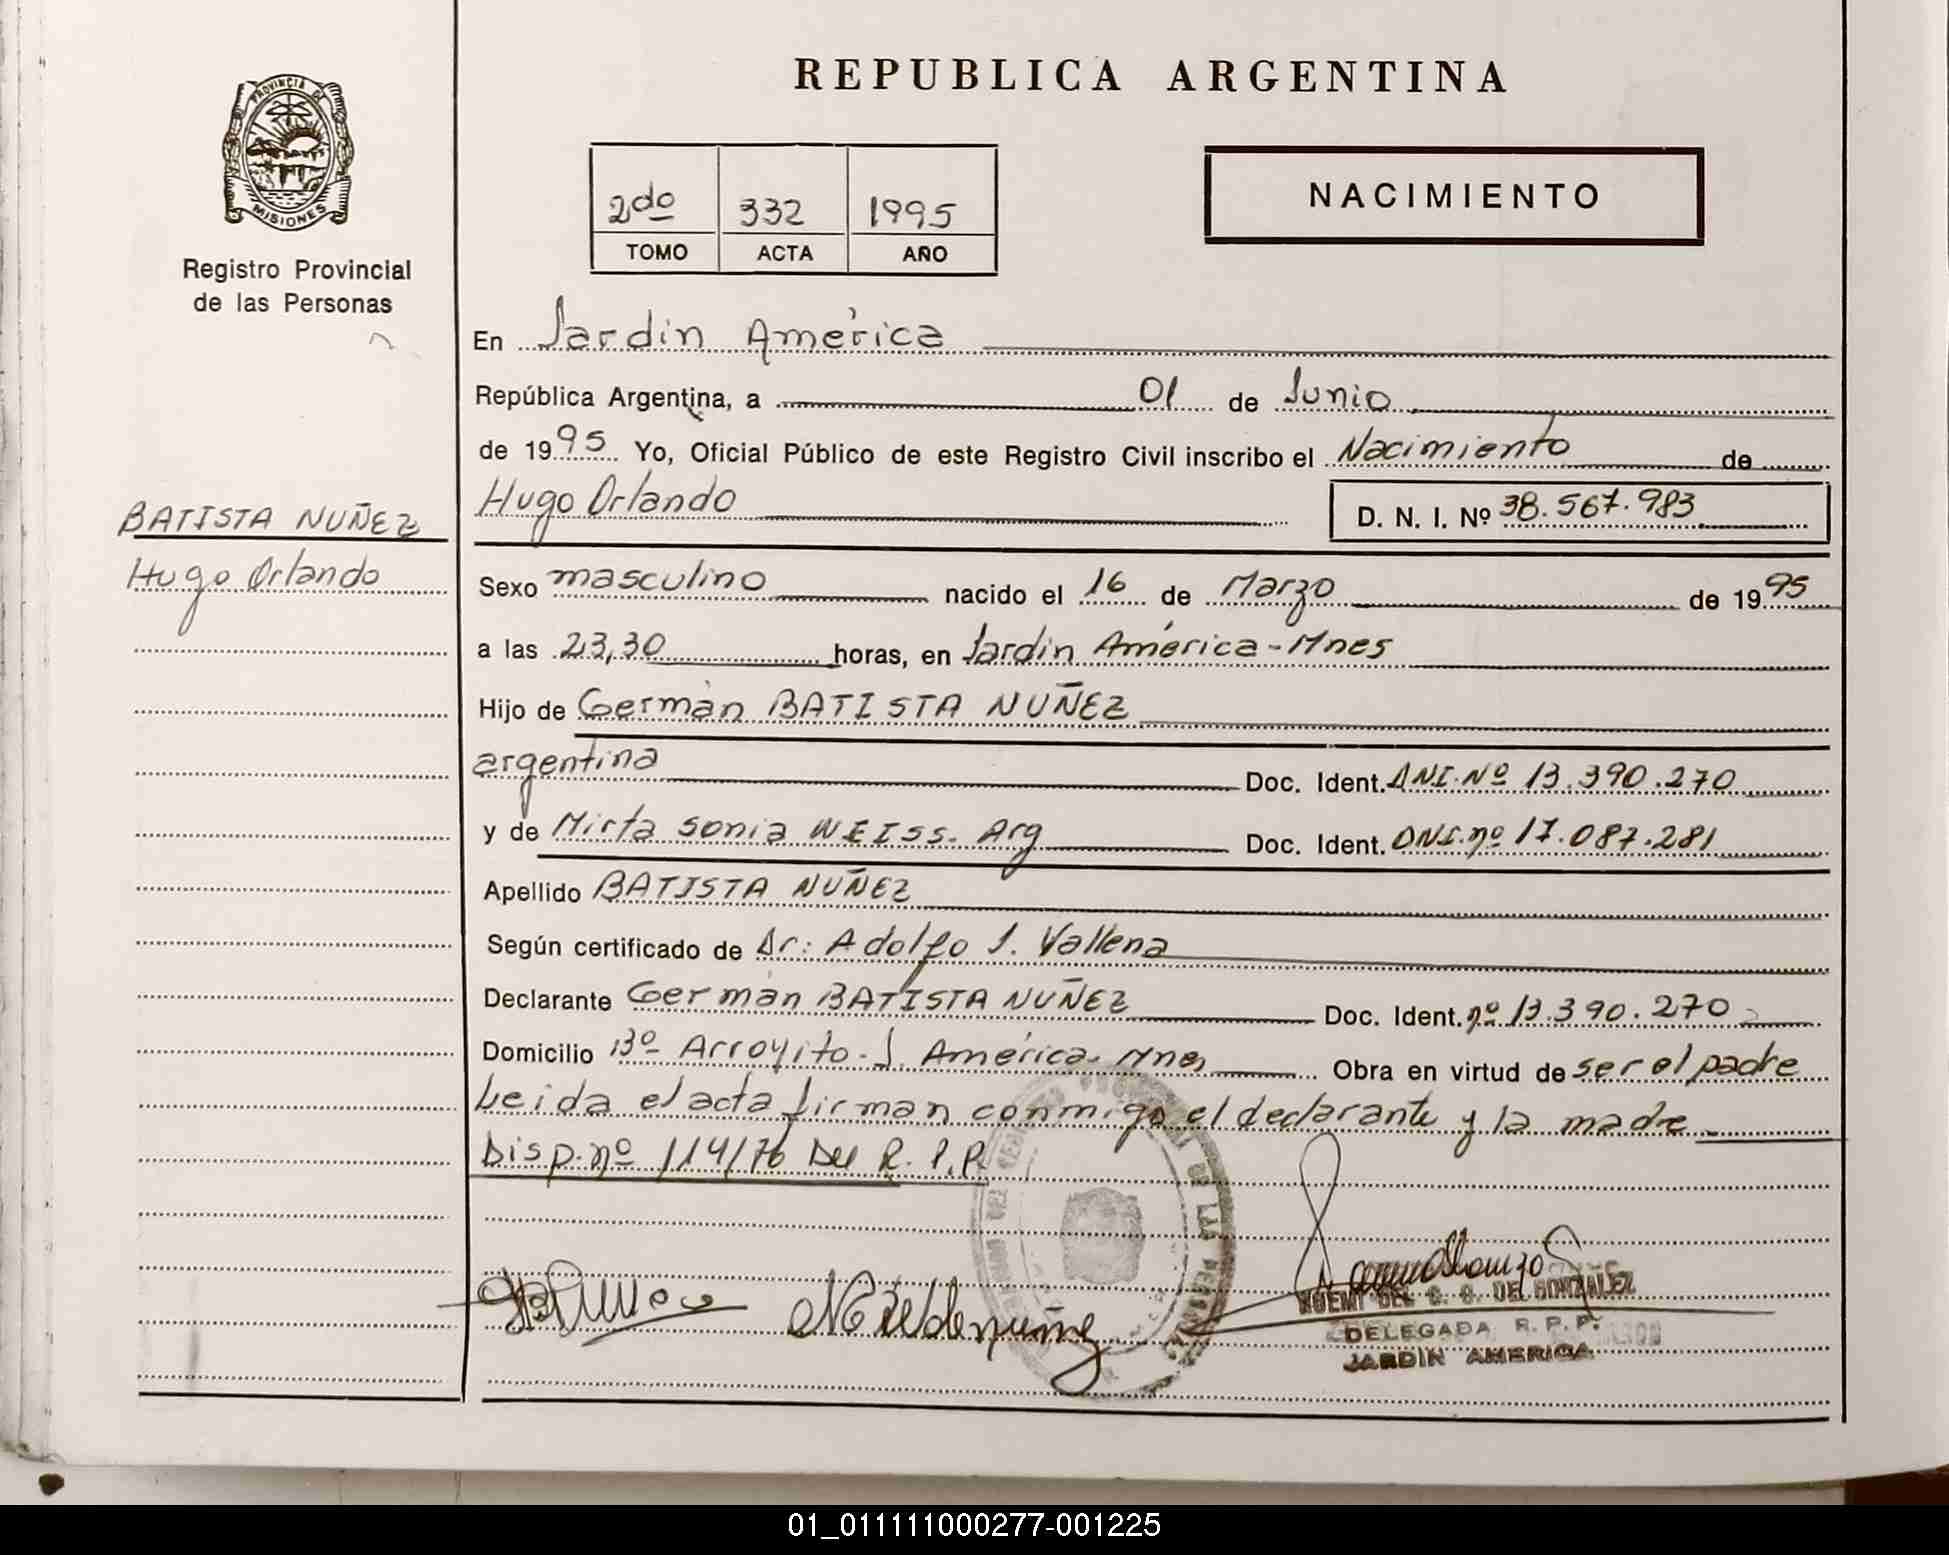 REPUBLICA ARGENTINA
PROVINCIA DE
MISIONES
Registro Provincial
de las Personas
2do 332 1995
TOMO ACTA AÑO
NACIMIENTO
En Jardín América
República Argentina, a 01 de Junio
de 1995 Yo, Oficial Público de este Registro Civil inscribo el Nacimiento de
Hugo Orlando D. N. I. Nº 38.567.983
BATISTA NUÑEZ
Hugo Orlando
Sexo masculino nacido el 16 de Marzo de 1995
a las 23,30 horas, en Jardín América - Mnes
Hijo de Germán BATISTA NUÑEZ
argentina Doc. Ident. DNI.Nº 13.390.270
y de Mirta Sonia WEISS. Arg Doc. Ident. DNI.nº 17.087.281
Apellido BATISTA NUÑEZ
Según certificado de Dr: Adolfo J. Vallena
Declarante Germán BATISTA NUÑEZ Doc. Ident. nº 13.390.270
Domicilio Bº Arroyito - J. América - Mnes Obra en virtud de ser el padre
Leida el acta firman conmigo el declarante y la madre
Disp. nº 114/76 Del R. P. P.
DELEGADA R. P. P.
JARDIN AMERICA
01_011111000277-001225